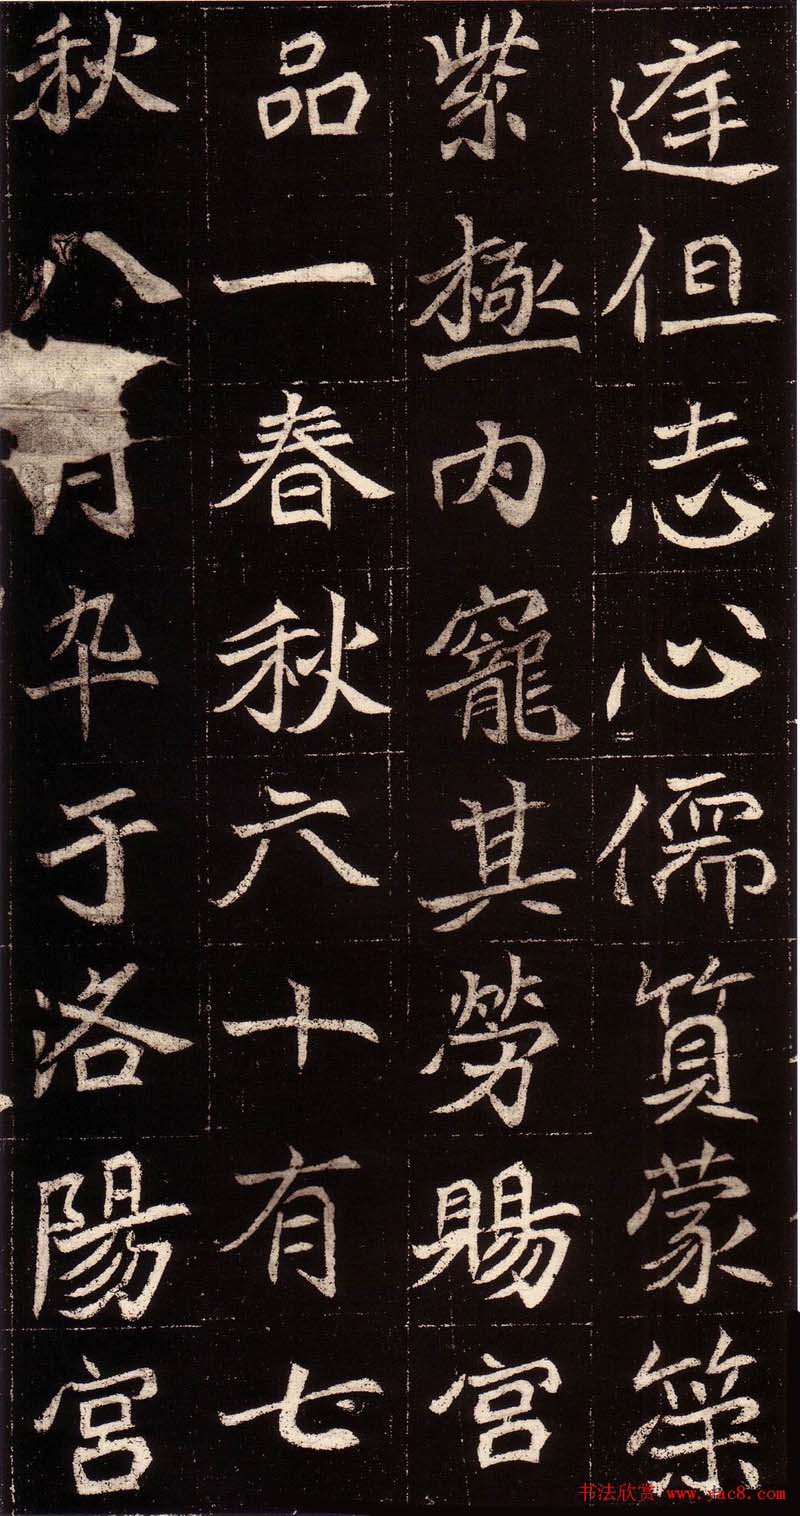 但志心儒筫蒙策
紫極内寵其勞賜宮
品一春秋六十有七
秋八月卆于洛陽宮
书法欣赏 www.yac8.com